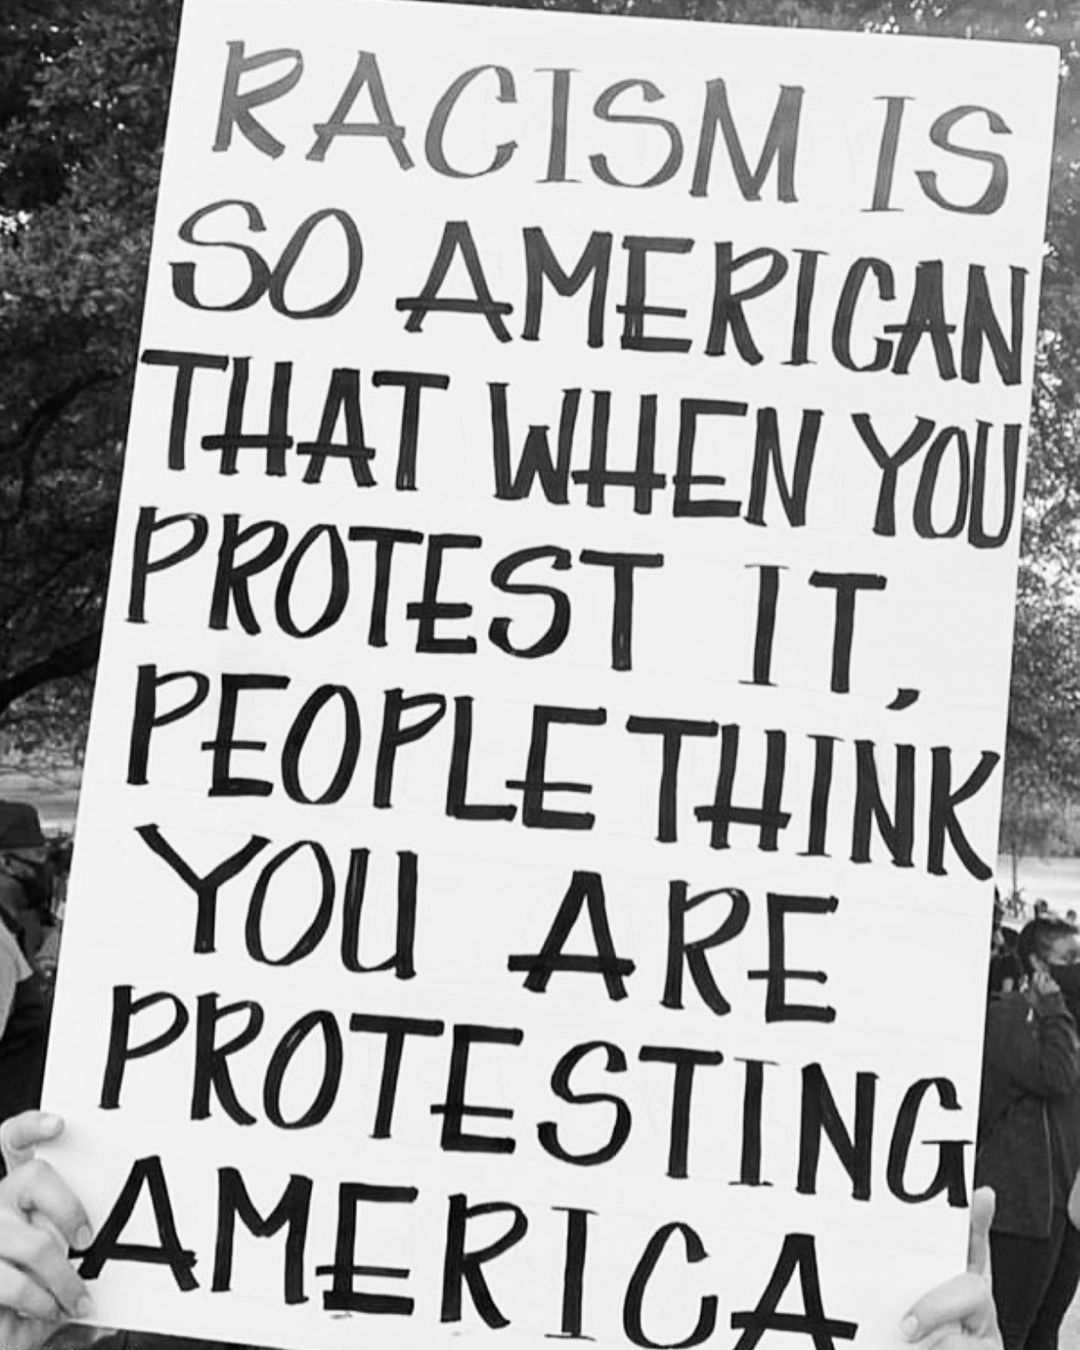 RACISM IS
SO AMERICAN
THAT WHEN YOU
PROTEST IT,
PEOPLE THINK
YOU ARE
PROTESTING
AMERICA